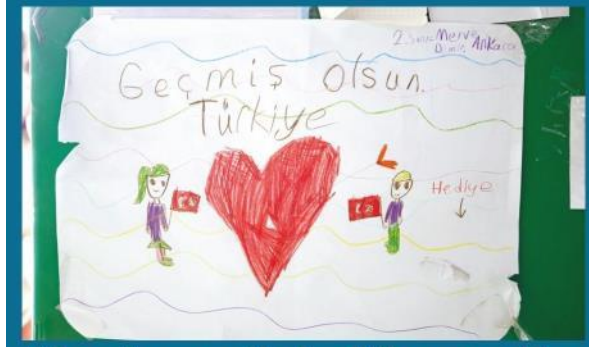 2. Sınıf Merve
Ankara
Geçmiş olsun.
Türkiye
Hediye